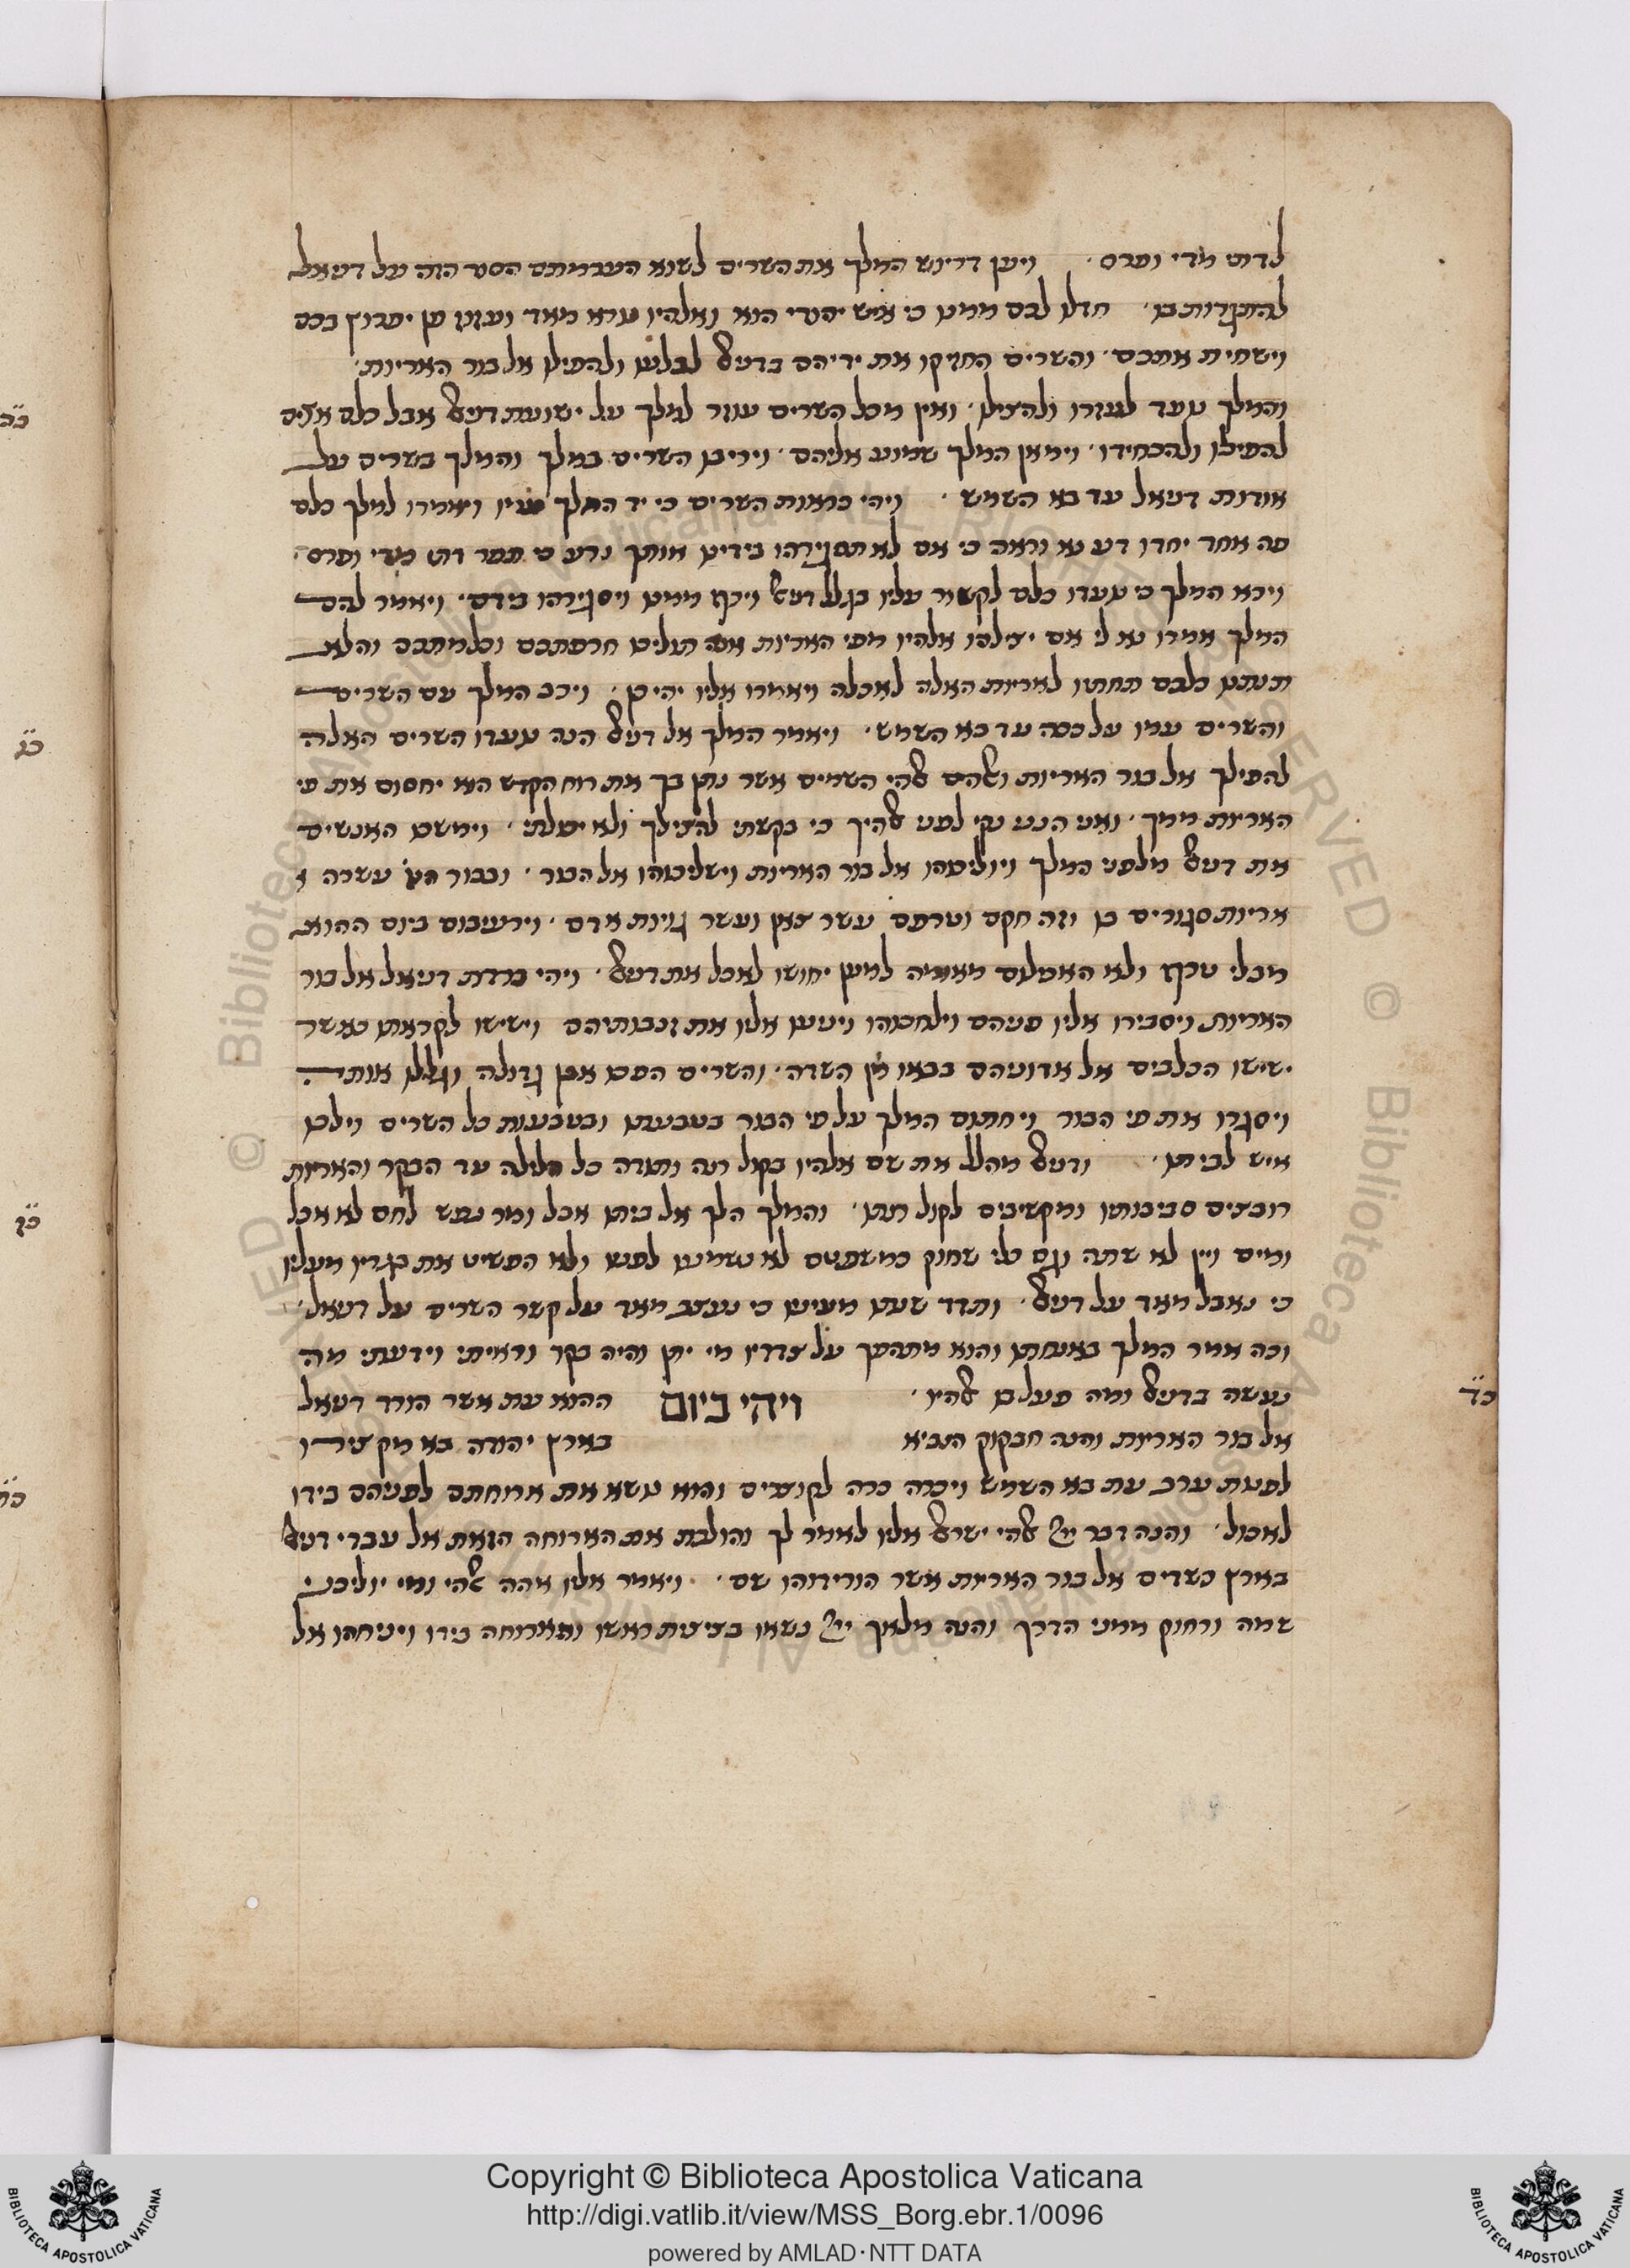 לדתי מדי ופרס. ויען דריוש המלך את השרים לשוא הערמתם הסוד הזה על דניאל
חדלו לכם ממנו כי איש יהודי הוא ואלהיו נורא מאד ועזוז פן יפרוץ בכם
וישחית אתכם. והשרים החזיקו את ידיהם בדניאל לבלעו ולהפילו אל בור האריות.
והמלך עמד לעוזרו ולהצילו. ואין מכל השרים עוזר למלך על ישועת דניאל אבל כלם אצים
להפילו ולהכחידו. וימאן המלך שמוע אליהם. ויריבון השרים במלך והמלך בשרים על
אודות דניאל עד בא השמש. ויהי כראות השרים כי יד המלך עמו ויאמרו למלך כלם
פה אחד יחדו דע נא וראה כי אם לא תסגירהו בידינו אותך נרע כי תפר דתי מדי ופרס.
וירא המלך כי נועדו כלם לקשור עליו בגלל דניאל ויקץ ממנו ויסגירהו בידם. ויאמר להם
המלך אמרו נא לי אם יצילהו אלהיו מפי האריות אנה תוליכו חרפתכם וכלמתכם והלא
תנתנו כלכם תחתיו לאריות האלה לאכלה ויאמרו אליו יהי כן. וישב המלך עם השרים
והשרים עמו על כסה עד בא השמש. ויאמר המלך אל דניאל הנה נועדו השרים האלה
להפילך אל בור האריות ואלהים אלהי השמים אשר נתן בך את רוח הקדש הוא יחסום את פי
האריות ממך. ואני הנני נקי לפני אלהיך כי בקשתי להצילך ולא יכולתי. וימשכו האנשים
את דניאל מלפני המלך ויוליכוהו אל בור האריות וישליכוהו אל הבור. ובבור היו עשרה
אריות סגורים בו וזה חקם וטרפם עשר צאן ועשר גויות אדם. וירעיבום ביום ההוא
מבלי טרף ולא האכלום מאומה למען יחושו לאכל את דניאל. ויהי ברדת דניאל אל בור
האריות ויסבירו אליו פניהם וילחכוהו ויניעו אליו את זנבותיהם וישישו לקראתו כאשר
ישישו הכלבים אל אדוניהם בבאו מן השדה. והשרים הפכו אבן גדולה ויגללו אותה
ויסגרו את פי הבור ויחתום המלך על פי הבור בטבעתו ובטבעות כל השרים וילכו
איש לביתו. ודניאל מהלל את שם אלהיו בקול רנה ותודה כל הלילה עד הבקר והאריות
רובצים סביבותיו ומקשיבים לקול רנתו. והמלך הלך אל ביתו אבל ומר נפש לחם לא אכל
ומים ויין לא שתה וגם כלי שחוק כמשפטם לא נשמעו לפניו ולא הפשיט את בגדיו מעליו
כי נאבל מאד על דניאל. ותדד שנתו מעיניו כי נעצב מאד על קשר השרים על דניאל.
וכה אמר המלך באנחתו והוא מתהפך על צדדיו מי יתן והיה בקר וראיתי וידעתי מה
נעשה בדניאל ומה פעל בו אלהיו. ויהי ביום ההוא עת אשר הורד דניאל
אל בור האריות והנה חבקוק הנביא בארץ יהודה בא מקצירו
לפנות ערב עת בא השמש ויכרה כרה לקוצרים והוא נושא את ארוחתם לפניהם בידו
לאכול. והנה דבר ייי אלהי ישראל אליו לאמר לך והולכת את הארוחה הזאת אל עבדי דניאל
בארץ כשדים אל בור האריות אשר הורידוהו שם. ויאמר אליו אהה אלהי ומי יוליכני
שמה ורחוק ממני הדרך והנה מלאך ייי נשאו בציצית ראשו והארוחה בידו ויניחהו אל
כ״ד